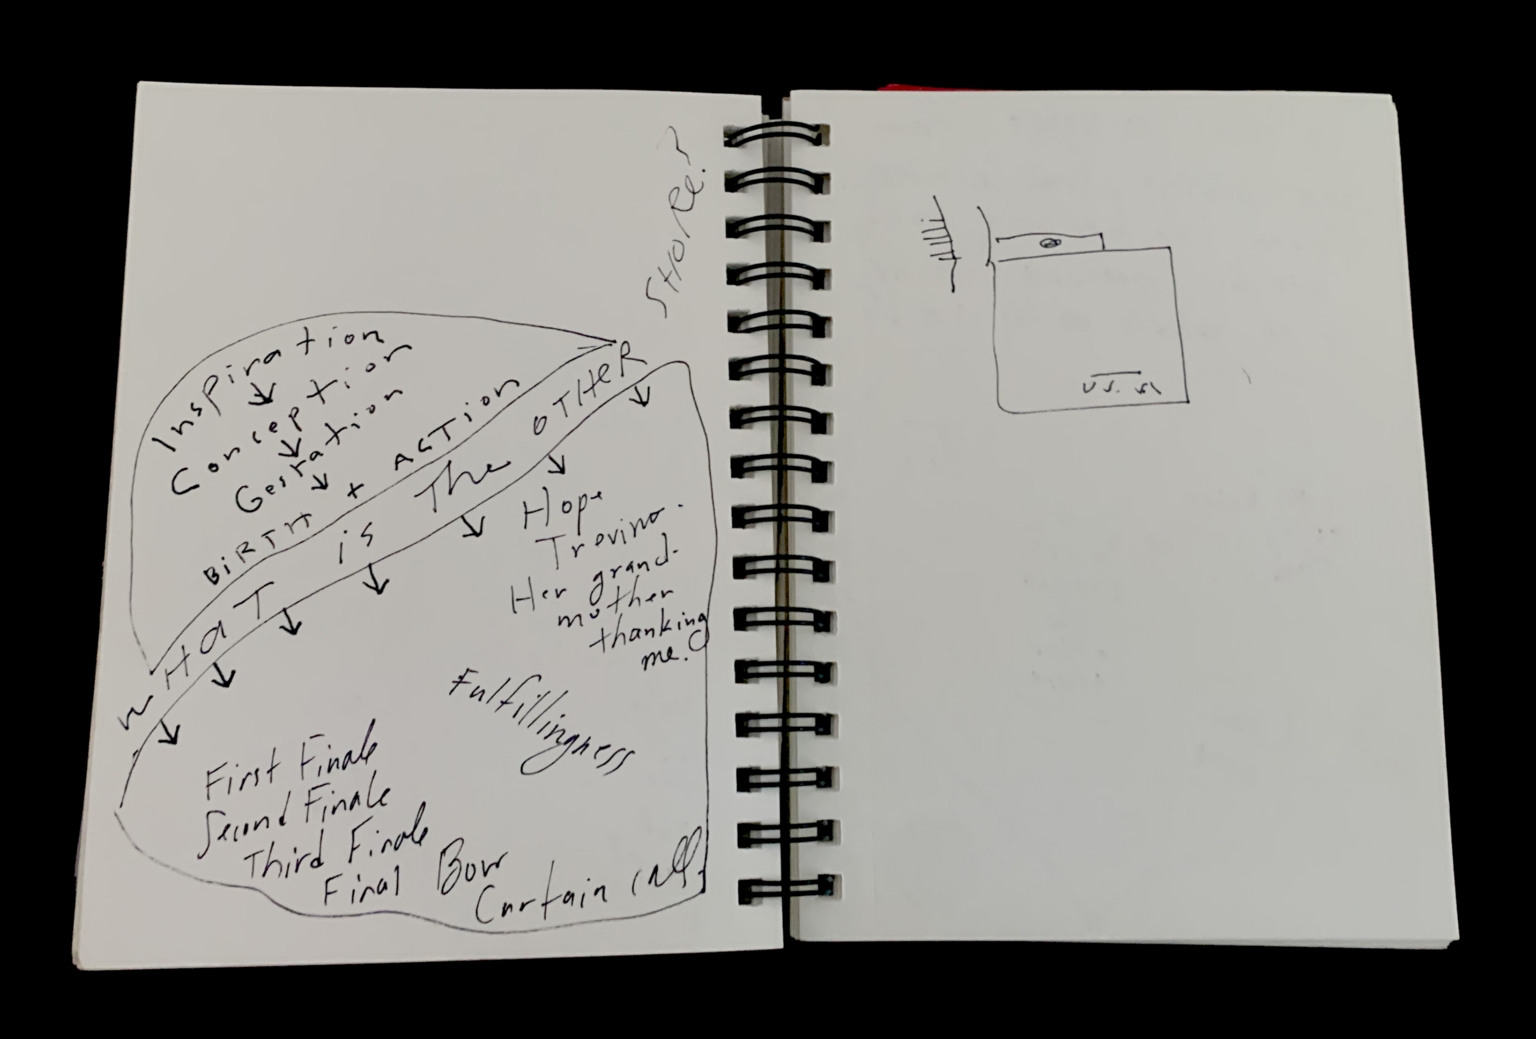 Inspiration
Conception
Gestation
BIRTH + ACTION
WHAT is The OTHER
SHORE?
Hope
Trevino.
Her grand-
mother
thanking
me.
Fulfillingness
First Finale
Second Finale
Third Finale
Final Bow
Curtain Call